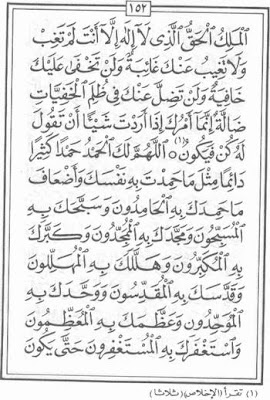 ١٥٢
ٱلْمَلِكُ ٱلْحَقُّ ٱلَّذِى لَآ إِلَهَ إِلَّآ أَنْتَ لَمْ تَغِبْ
وَلَا تَغِيبُ عَنْكَ غَائِبَةٌ وَلَنْ تَخْفَى عَلَيْكَ
خَافِيَةٌ وَلَنْ تَضِلَّ عَنْكَ فِى ظُلَمِ ٱلْخَفِيَّاتِ
ضَالَّةٌ إِنَّمَا أَمْرُكَ إِذَا أَرَدْتَ شَيْئًا أَنْ تَقُولَ
لَهُ كُنْ فَيَكُونُ (١) ٱللَّهُمَّ لَكَ ٱلْحَمْدُ حَمْدًا كَثِيرًا
دَائِمًا مِثْلَ مَا حَمِدْتَ بِهِ نَفْسَكَ وَأَضْعَافَ
مَا حَمِدَكَ بِهِ ٱلْحَامِدُونَ وَسَبَّحَكَ بِهِ
ٱلْمُسَبِّحُونَ وَمَجَّدَكَ بِهِ ٱلْمُمَجِّدُونَ وَكَبَّرَكَ
بِهِ ٱلْمُكَبِّرُونَ وَهَلَّلَكَ بِهِ ٱلْمُهَلِّلُونَ
وَقَدَّسَكَ بِهِ ٱلْمُقَدِّسُونَ وَوَحَّدَكَ بِهِ
ٱلْمُوَحِّدُونَ وَعَظَّمَكَ بِهِ ٱلْمُعَظِّمُونَ
وَٱسْتَغْفَرَكَ بِهِ ٱلْمُسْتَغْفِرُونَ حَتَّى يَكُونَ
(١) تقرأ (الإخلاص) (ثلاثا)